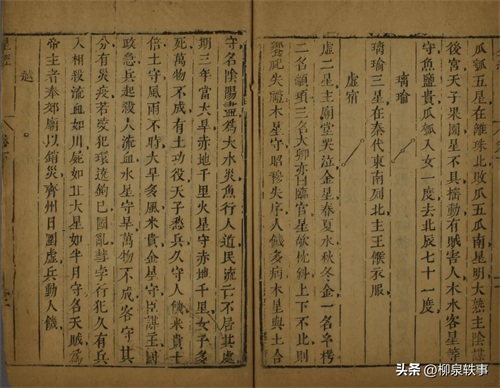 瓜瓠五星在離珠北敗瓜五瓜南星明大熟主陰謀
後宮天子果園星不具搖動有賊害人木水客星等
守魚鹽貴瓜瓠入女一度去北辰七十一度
璃瑜
璃瑜三星在秦代東南列北主王侯衣服
虛宿
虛二星主廟堂哭泣金星春夏水秋冬金一名牟楞
二名顓頊三名大卿亦曰臨官星欲枕斜上下不比則
饗祀失禮木星守昭穆失序人饑多病木星與土合
守名陰陽盡為大水災魚行人道民流亡不居其處
期三年當大旱赤地千里火星守赤地千里女子多
死萬物不成有土功役天子愁兵久守人饑米貴十
倍土守風雨不時大旱多風米貴金星守臣謀王國
政急兵起殺人流血水星守旱萬物不成客守其
分有災疫若犯環遶鉤巳國亂彗孛行犯久有兵
人相殺流血如川屍如丘大星如半月守名天賊為
帝主者奉郊廟以銷災齊州日圍虛兵動人饑
越
头条 @柳泉轶事